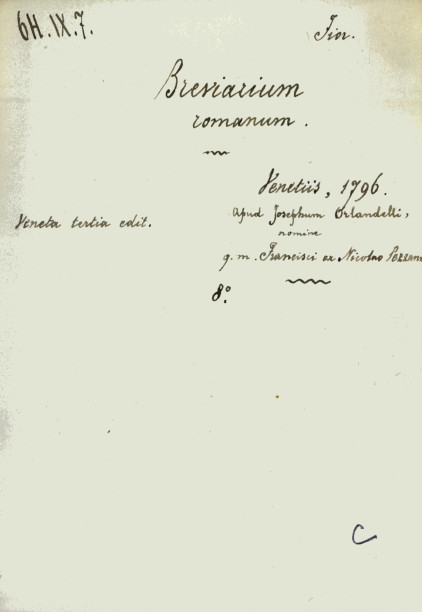 6H.IX.7.
Fior.
Breviarium
romanum.
Venetiis, 1796.
Veneta tertia edit.
apud Josephum Orlandelli,
nomine
q. m. Francisci ex Nicolao Pezzana
8°.
C